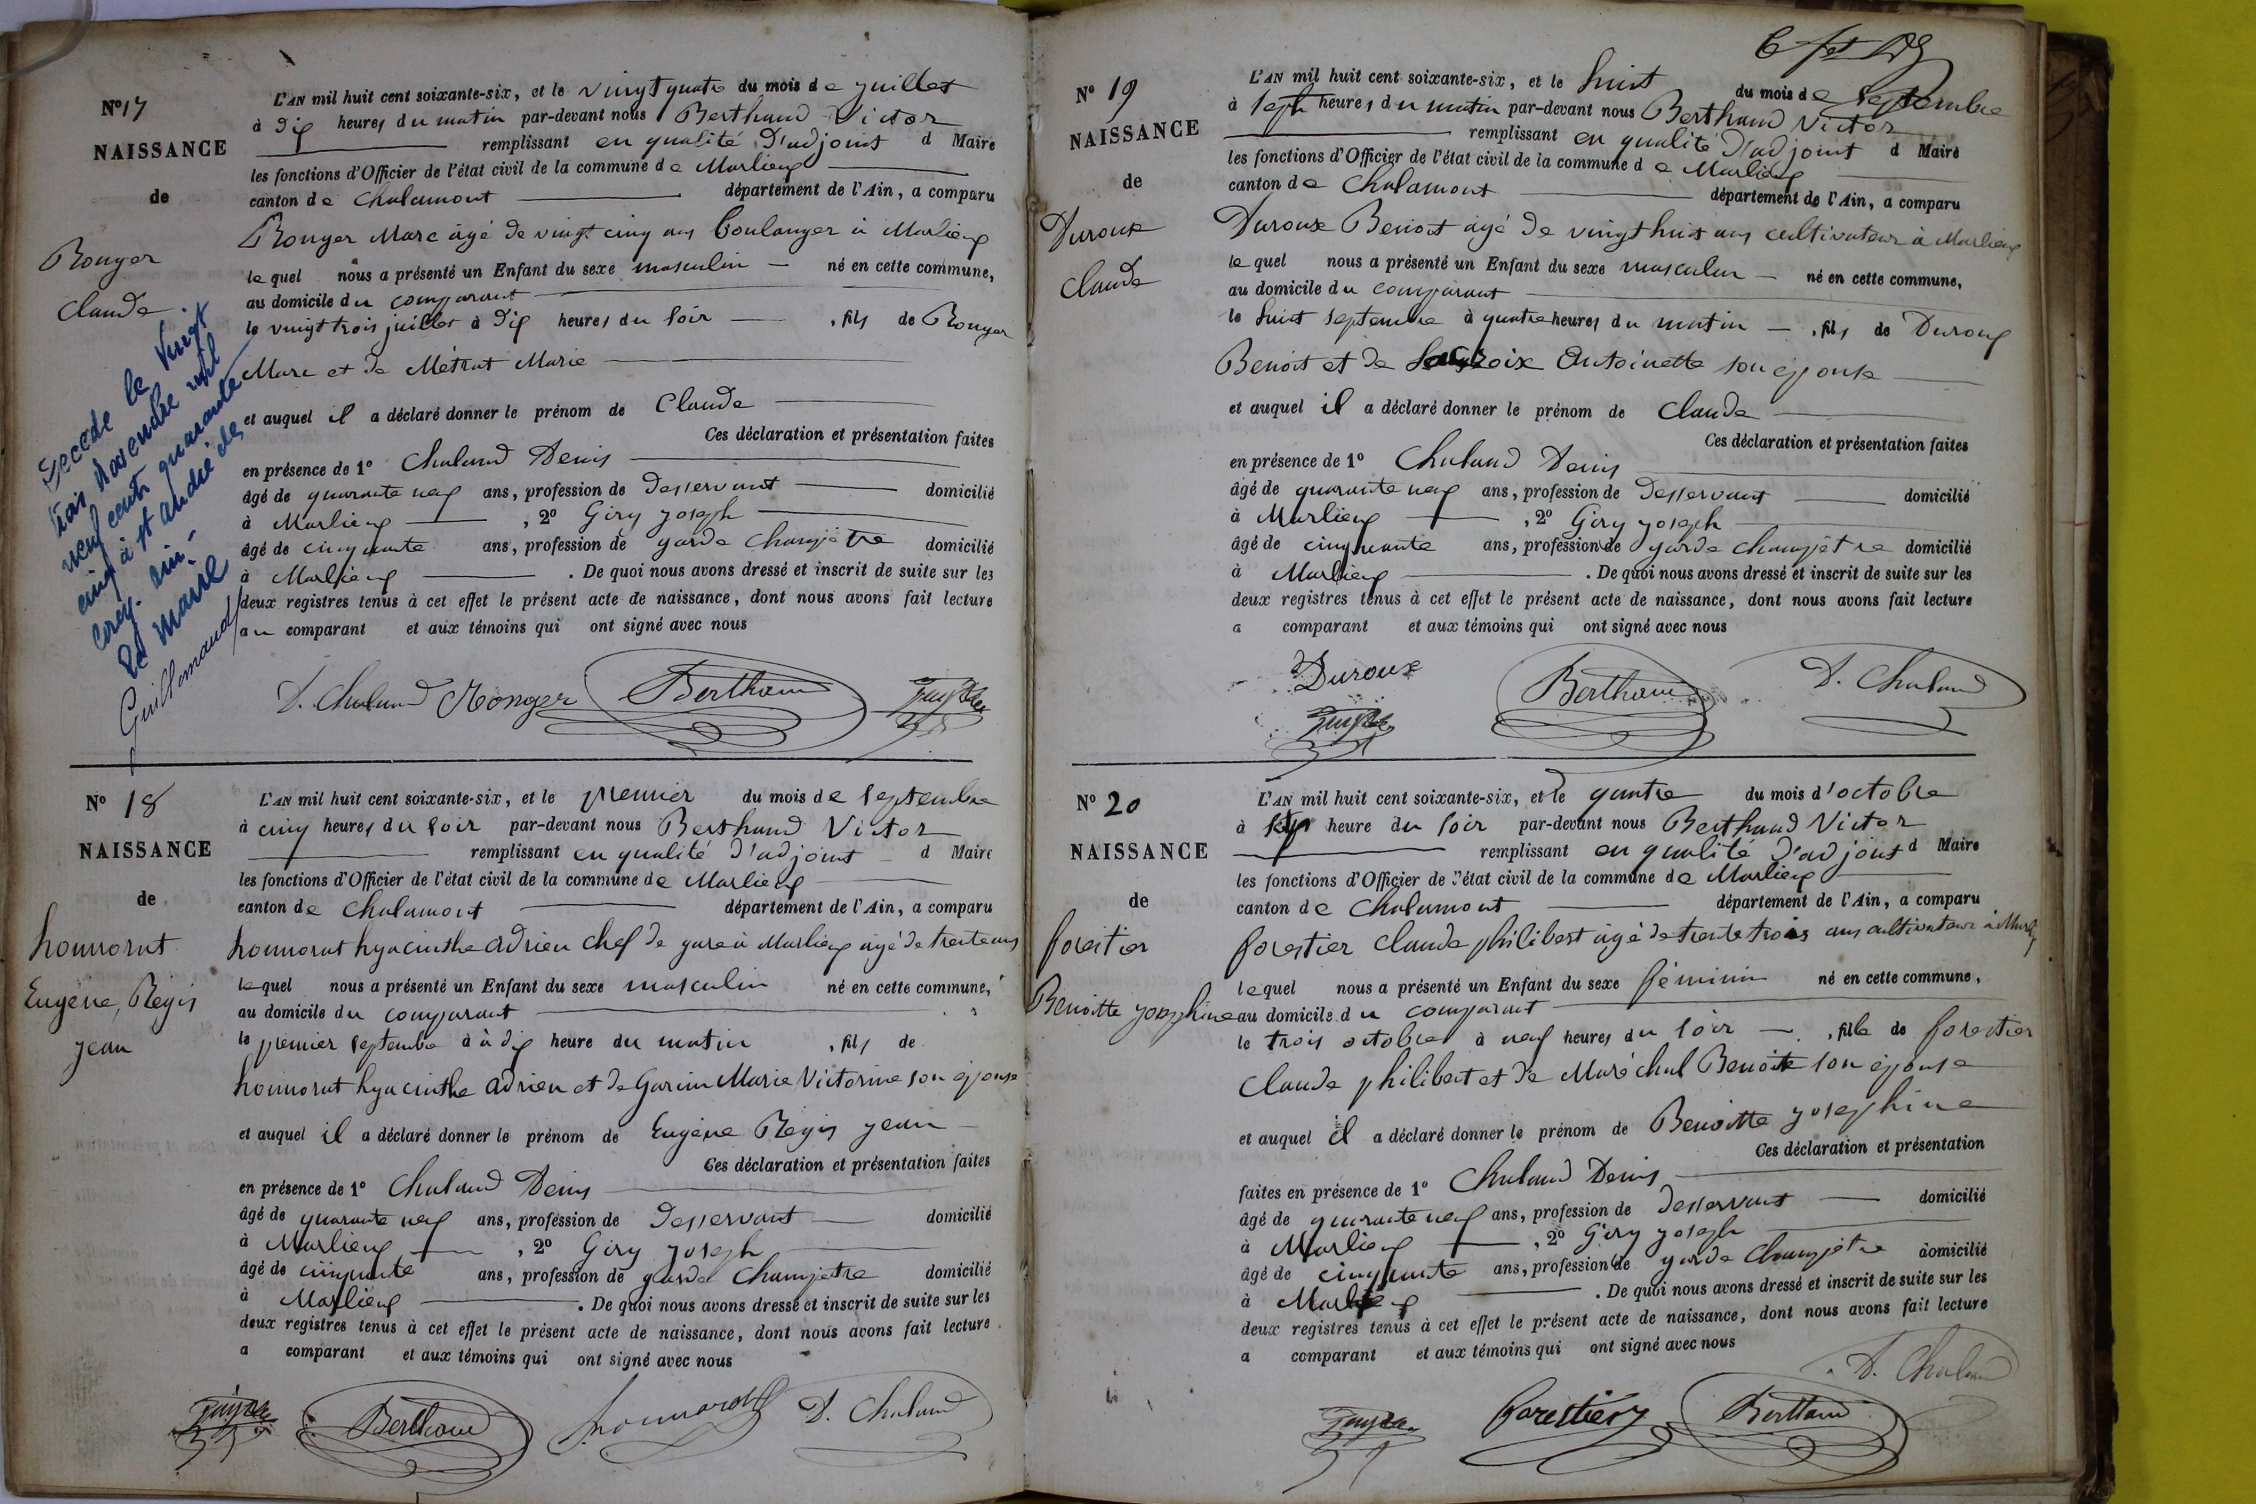 N° 17
NAISSANCE
de
Ronger
Claude
Décédé le vingt
trois novembre mil
neuf cent quarante
cinq à St André de
Corcy. Ain.
Le Maire
Guillemaud
L'AN mil huit cent soixante-six, et le vingt quatre du mois de juillet
à dix heures du matin par-devant nous Berthaud Victor
remplissant en qualité d'adjoint d Maire
les fonctions d'Officier de l'état civil de la commune de Marlieux
canton de Chalamont département de l'Ain, a comparu
Ronger Marc âgé de vingt cinq ans boulanger à Marlieux
lequel nous a présenté un Enfant du sexe masculin né en cette commune,
au domicile du comparant
le vingt trois juillet à dix heures du soir, fils de Ronger
Marc et de Métrat Marie
et auquel il a déclaré donner le prénom de Claude
Ces déclaration et présentation faites
en présence de 1° Chaland Denis
âgé de quarante neuf ans, profession de desservant domicilié
à Marlieux, 2° Giry joseph
âgé de cinquante ans, profession de garde champêtre domicilié
à Marlieux. De quoi nous avons dressé et inscrit de suite sur les
deux registres tenus à cet effet le présent acte de naissance, dont nous avons fait lecture
au comparant et aux témoins qui ont signé avec nous
D. Chaland Ronger Berthaud
N° 18
NAISSANCE
de
honnorat
Eugène, Régis
jean
L'AN mil huit cent soixante-six, et le premier du mois de septembre
à cinq heures du soir par-devant nous Berthaud Victor
remplissant en qualité d'adjoint d Maire
les fonctions d'Officier de l'état civil de la commune de Marlieux
canton de Chalamont département de l'Ain, a comparu
honnorat hyacinthe adrien chef de gare à Marlieux âgé de trente ans
lequel nous a présenté un Enfant du sexe masculin né en cette commune,
au domicile du comparant
le premier septembre à à dix heure du matin, fils de
honnorat hyacinthe adrien et de Garnin Marie Victorine son épouse
et auquel il a déclaré donner le prénom de Eugène Régis jean
Ces déclaration et présentation faites
en présence de 1° Chaland Denis
âgé de quarante neuf ans, profession de desservant domicilié
à Marlieux, 2° Giry joseph
âgé de cinquante ans, profession de garde champêtre domicilié
à Marlieux. De quoi nous avons dressé et inscrit de suite sur les
deux registres tenus à cet effet le présent acte de naissance, dont nous avons fait lecture
a comparant et aux témoins qui ont signé avec nous
Berthaud honnorat D. Chaland
N° 19
NAISSANCE
de
Duroux
Claude
L'AN mil huit cent soixante-six, et le huit du mois de septembre
à sept heures du matin par-devant nous Berthaud Victor
remplissant en qualité d'adjoint d Maire
les fonctions d'Officier de l'état civil de la commune de Marlieux
canton de Chalamont département de l'Ain, a comparu
Duroux Benoit âgé de vingt huit ans cultivateur à Marlieux
lequel nous a présenté un Enfant du sexe masculin né en cette commune,
au domicile du comparant
le huit septembre à quatre heures du matin, fils de Duroux
Benoit et de Lacroix Antoinette son épouse
et auquel il a déclaré donner le prénom de Claude
Ces déclaration et présentation faites
en présence de 1° Chaland Denis
âgé de quarante neuf ans, profession de desservant domicilié
à Marlieux, 2° Giry joseph
âgé de cinquante ans, profession de garde champêtre domicilié
à Marlieux. De quoi nous avons dressé et inscrit de suite sur les
deux registres tenus à cet effet le présent acte de naissance, dont nous avons fait lecture
a comparant et aux témoins qui ont signé avec nous
Duroux Berthaud D. Chaland
N° 20
NAISSANCE
de
forestier
Benoitte josephine
L'AN mil huit cent soixante-six, et le quatre du mois d'octobre
à sept heure du soir par-devant nous Berthaud Victor
remplissant en qualité d'adjoint d Maire
les fonctions d'Officier de l'état civil de la commune de Marlieux
canton de Chalamont département de l'Ain, a comparu
forestier claude philibert âgé de trente trois ans cultivateur à Marlieux
lequel nous a présenté un Enfant du sexe féminin né en cette commune,
au domicile du comparant
le trois octobre à neuf heures du soir, fille de forestier
Claude philibert et de Maréchal Benoite son épouse
et auquel il a déclaré donner le prénom de Benoitte josephine
Ces déclaration et présentation
faites en présence de 1° Chaland Denis
âgé de quarante neuf ans, profession de desservant domicilié
à Marlieux, 2° Giry joseph
âgé de cinquante ans, profession de garde champêtre domicilié
à Marlieux. De quoi nous avons dressé et inscrit de suite sur les
deux registres tenus à cet effet le présent acte de naissance, dont nous avons fait lecture
a comparant et aux témoins qui ont signé avec nous
D. Chaland
forestier Berthaud